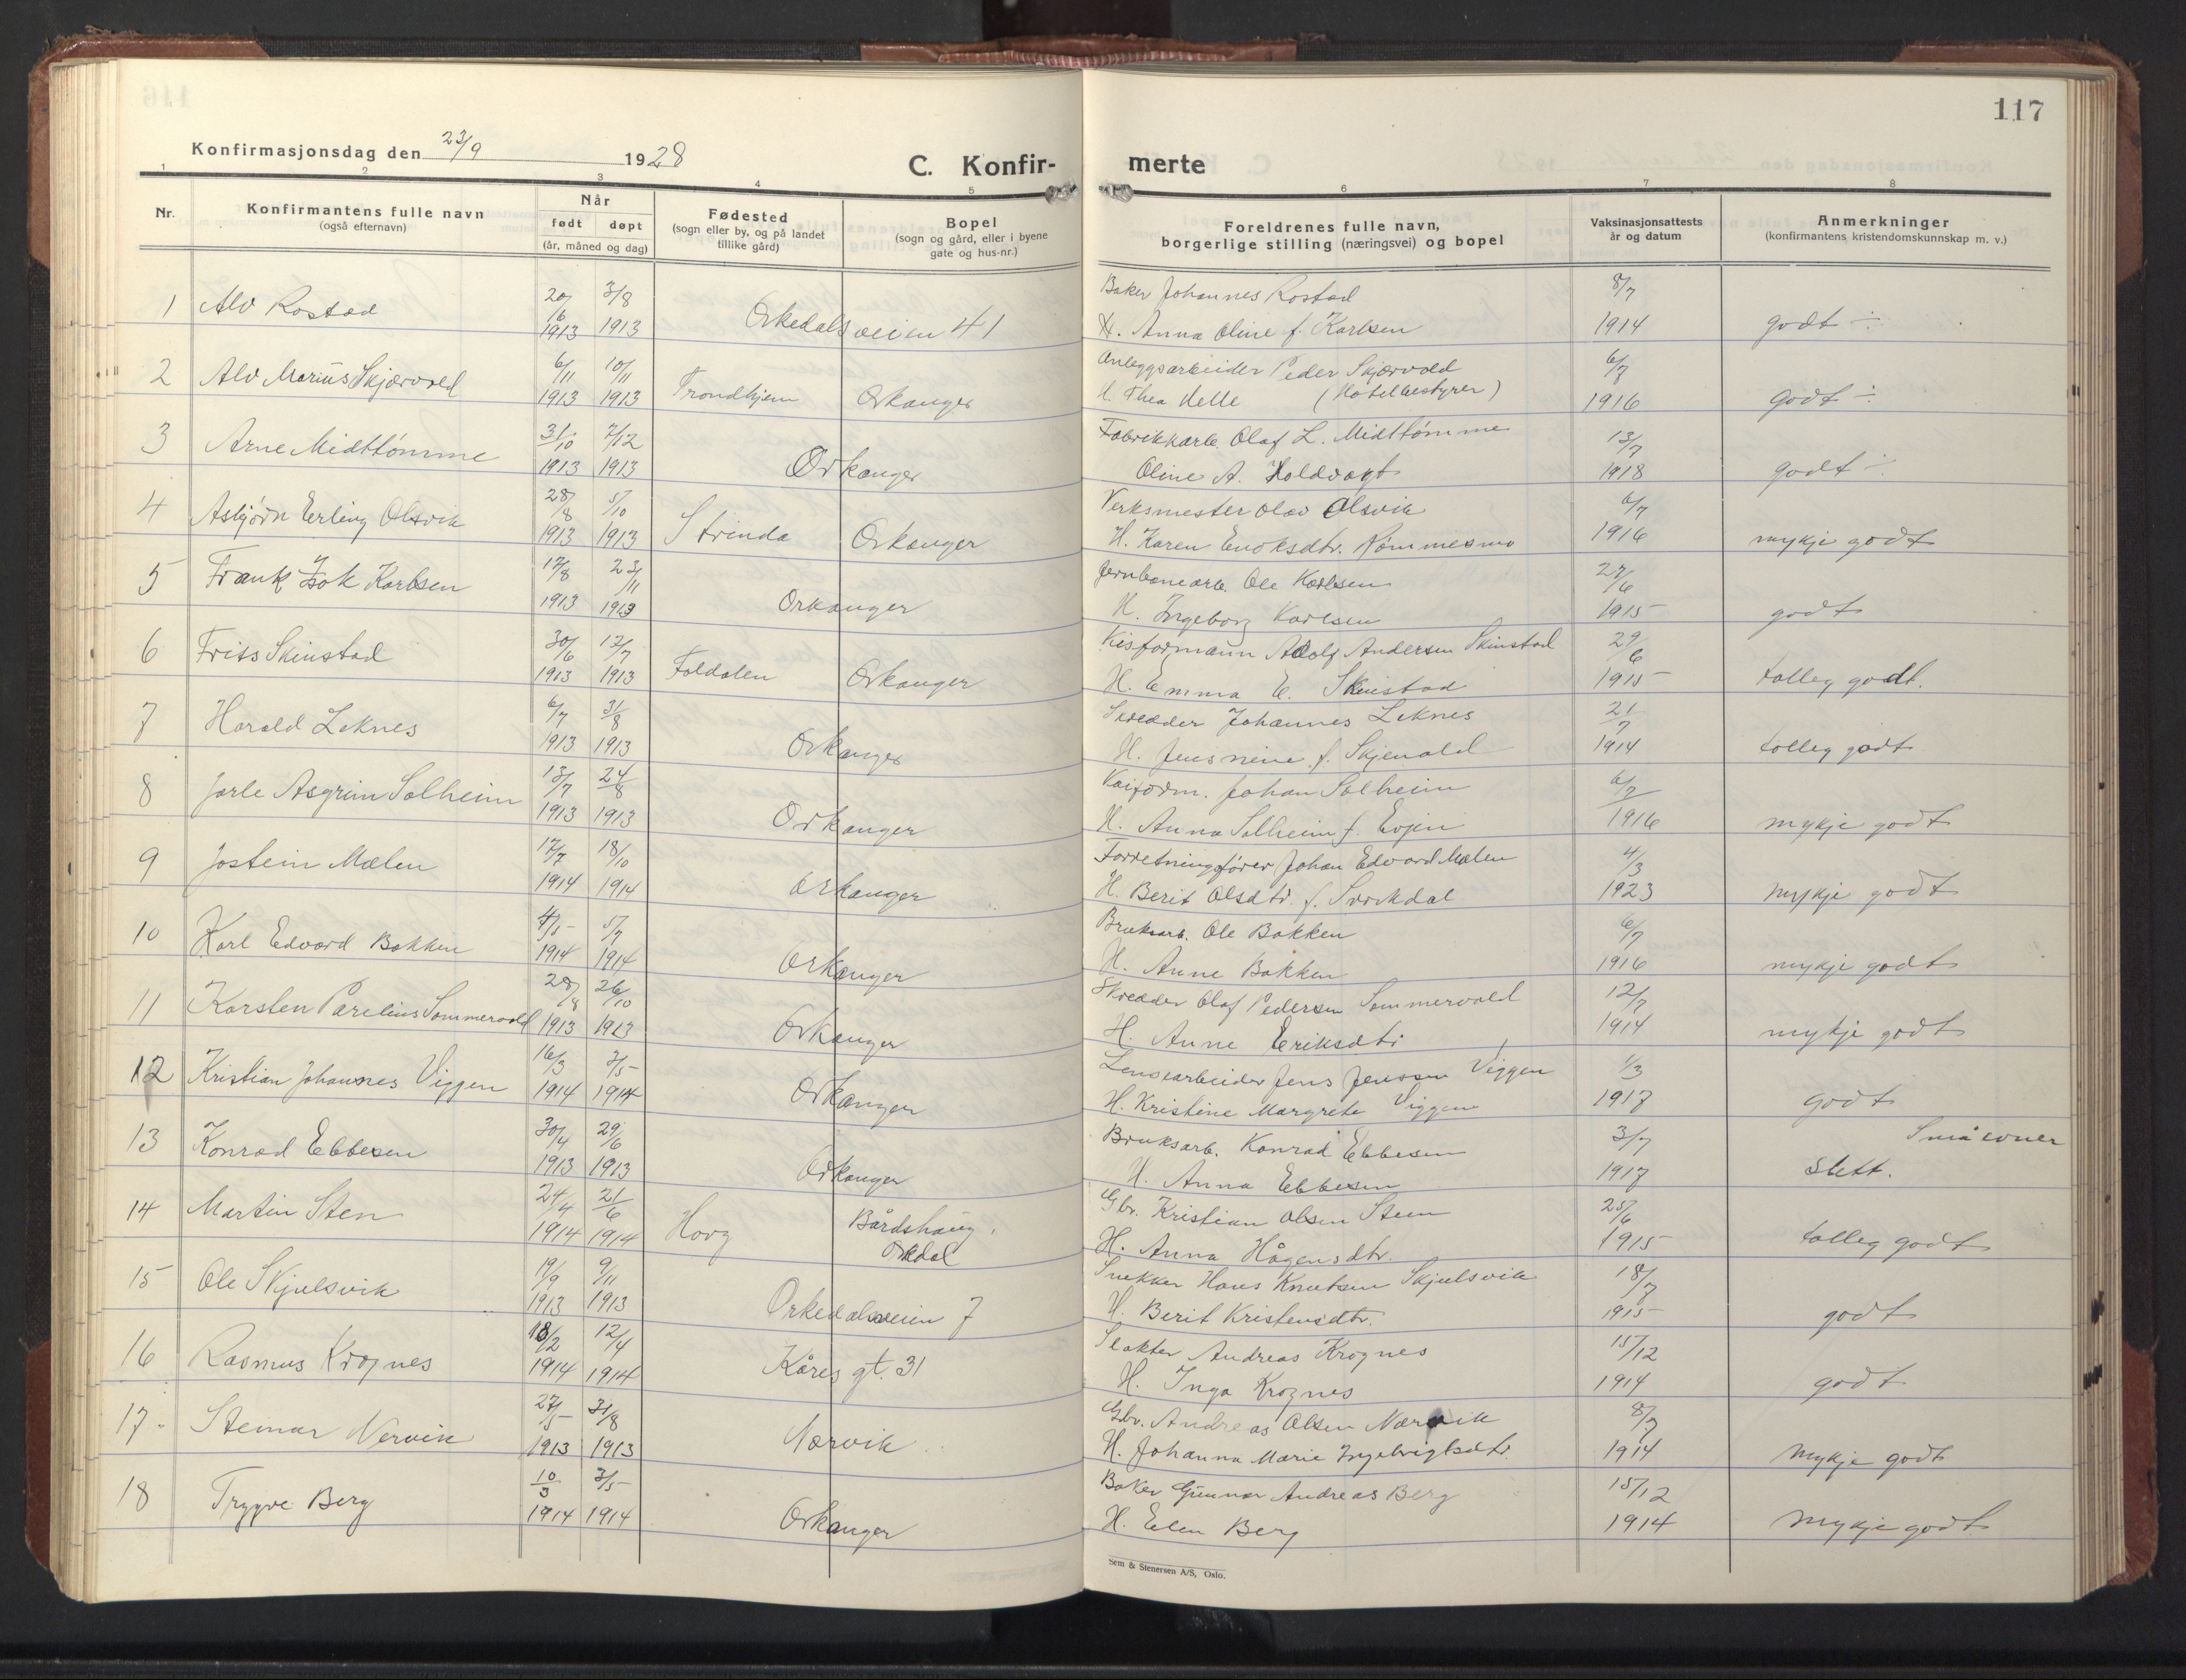 117
Konfirmasjonsdag den 23/9 1928
C. Konfir-
merte
1 2 3 4 5 6 7 8
Nr.
Konfirmantens fulle navn
(også efternavn)
Når
født døpt
(år, måned og dag)
Fødested
(sogn eller by, og på landet
tillike gård)
Bopel
(sogn og gård, eller i byene
gate og hus-nr.)
Foreldrenes fulle navn,
borgerlige stilling (næringsvei) og bopel
Vaksinasjonsattests
år og datum
Anmerkninger
(konfirmantens kristendomskunnskap m. v.)
1 Alv Rostad 20/6 3/8 Baker Johannes Rostad 8/7
1913 1913 Orkedalsveien 41 H. Anna Oline f. Karlsen 1914 godt ÷
2 Alv Marius Skjærvold 6/11 10/11 Anleggsarbeider Peder Skjærvold 6/7
1913 1913 Trondhjem Orkanger H. Thea Helle (Hotelbestyrer) 1916 godt ÷
3 Arne Midttømme 31/10 7/12 Fabrikkarb. Olaf L. Midttømme 13/7
1913 1913 Orkanger Oline A. Holdvogt 1918 godt ÷
4 Asbjørn Erling Olsvik 28/8 5/10 Verksmester Olav Olsvik 6/7
1913 1913 Strinda Orkanger H. Karen Enoksdtr. Rømmesmo 1916 mykje godt
5 Frank Isak Karlsen 17/8 23/11 Jernbanearb. Ole Karlsen 27/6
1913 1913 Orkanger H. Ingeborg Karlsen 1915 godt
6 Frits Skinstad 30/6 17/7 Kisformann Adolf Andersen Skinstad 29/6
1913 1913 Foldalen Orkanger H. Emma E. Skinstad 1915 tolleg godt.
7 Harald Leknes 6/7 31/8 Skredder Johannes Leknes 21/7
1913 1913 Orkanger H. Jensnine f. Skjenald 1914 tolleg godt
8 Jarle Asgrim Solheim 13/7 24/8 Kaiform. Johan Solheim 6/7
1913 1913 Orkanger H. Anna Solheim f. Evjen 1916 mykje godt
9 Jostein Mælen 17/7 18/10 Forretningsfører Johan Edvard Mælen 4/3
1914 1914 Orkanger H. Berit Olsdtr. f. Svorkdal 1923 mykje godt
10 Karl Edvard Bakken 4/5 5/7 Bruksarb. Ole Bakken 6/7
1914 1914 Orkanger H. Anne Bakken 1916 mykje godt
11 Karsten Parelius Sommervold 28/8 26/10 Skredder Olaf Pedersen Sommervold 12/7
1913 1913 Orkanger H. Anne Eriksdtr 1914 mykje godt
12 Kristian Johannes Viggen 16/3 3/5 Lensearbeider Jens Jenssen Viggen 1/3
1914 1914 Orkanger H. Kristine Margrete Viggen 1917 godt
13 Konrad Ebbesen 30/4 29/6 Bruksarb. Konrad Ebbesen 3/7 Små evner
1913 1913 Orkanger H. Anna Ebbesen 1917 slett.
14 Martin Sten 24/4 21/6 Bårdshaug, Gbr. Kristian Olsen Steen 25/6
1914 1914 Hovg Orkdal H. Anna Hågensdtr. 1915 tolleg godt
15 Ole Skjulsvik 19/9 9/11 Snekker Hans Knutsen Skjulsvik 18/7
1913 1913 Orkedalsveien 7 H. Berit Kristensdtr. 1915 godt
16 Rasmus Krognes 18/2 12/4 Slakter Andreas Krognes 15/12
1914 1914 Kåres gt. 31 H. Inga Krognes 1914 godt
17 Steinar Nervik 27/5 31/8 Gbr. Andreas Olsen Nærvik 8/7
1913 1913 Nærvik H. Johanna Marie Ingebrigtsdtr. 1914 mykje godt
18 Trygve Berg 10/3 3/5 Baker Gunnar Andreas Berg 15/12
1914 1914 Orkanger H. Elen Berg 1914 mykje godt
Sem & Stenersen A/S, Oslo.